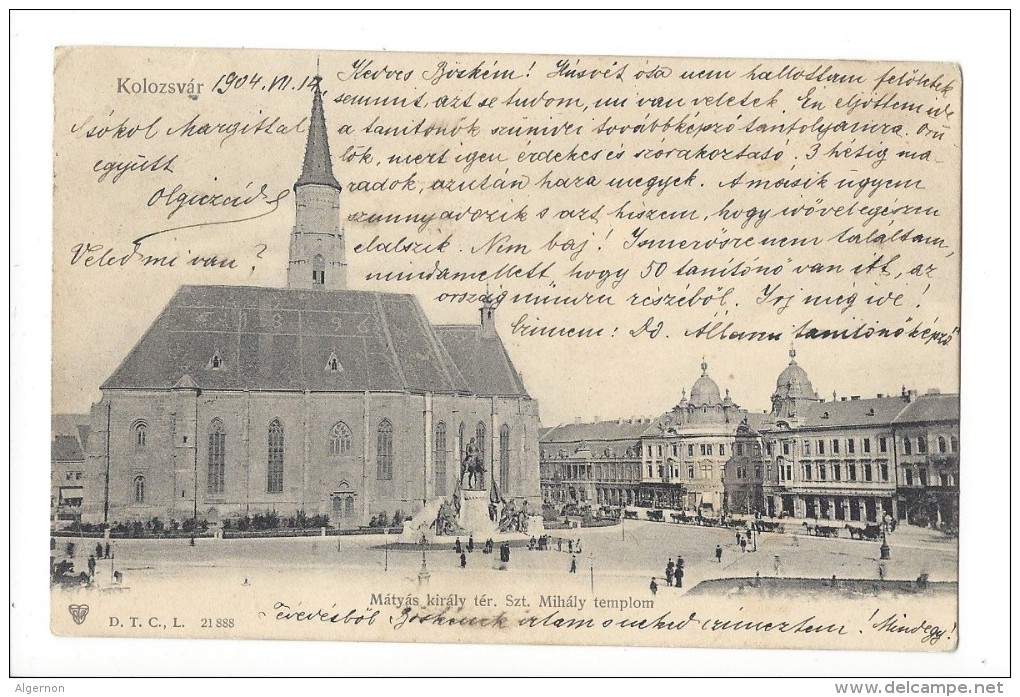 Kolozsvár 1904. VII. 14.
Kedves Böském! Húsvét óta nem hallottam felőletek
semmit, azt se tudom, mi van veletek. Én eljöttem ide
a tanítónők szünidei továbbképző tanfolyamára. Örü
lök, mert igen érdekes és szórakoztató. 3 hétig ma-
radok, azután haza megyek. A másik ügyem
szunnyadozik s azt hiszem, hogy idővel egészen
elalszik. Nem baj! Ismerősre nem találtam,
mindamellett, hogy 50 tanítónő van itt, az
ország minden részéből. Írj még ide!
Címem: Áll. tanítónőképző
Csókol Margittal
együtt
Veled mi van?
Mátyás király tér. Szt. Mihály templom
D. T. C., L. 21888
Tévedésből Böskének írtam s neked címeztem! Mindegy!
Algernon
www.delcampe.net